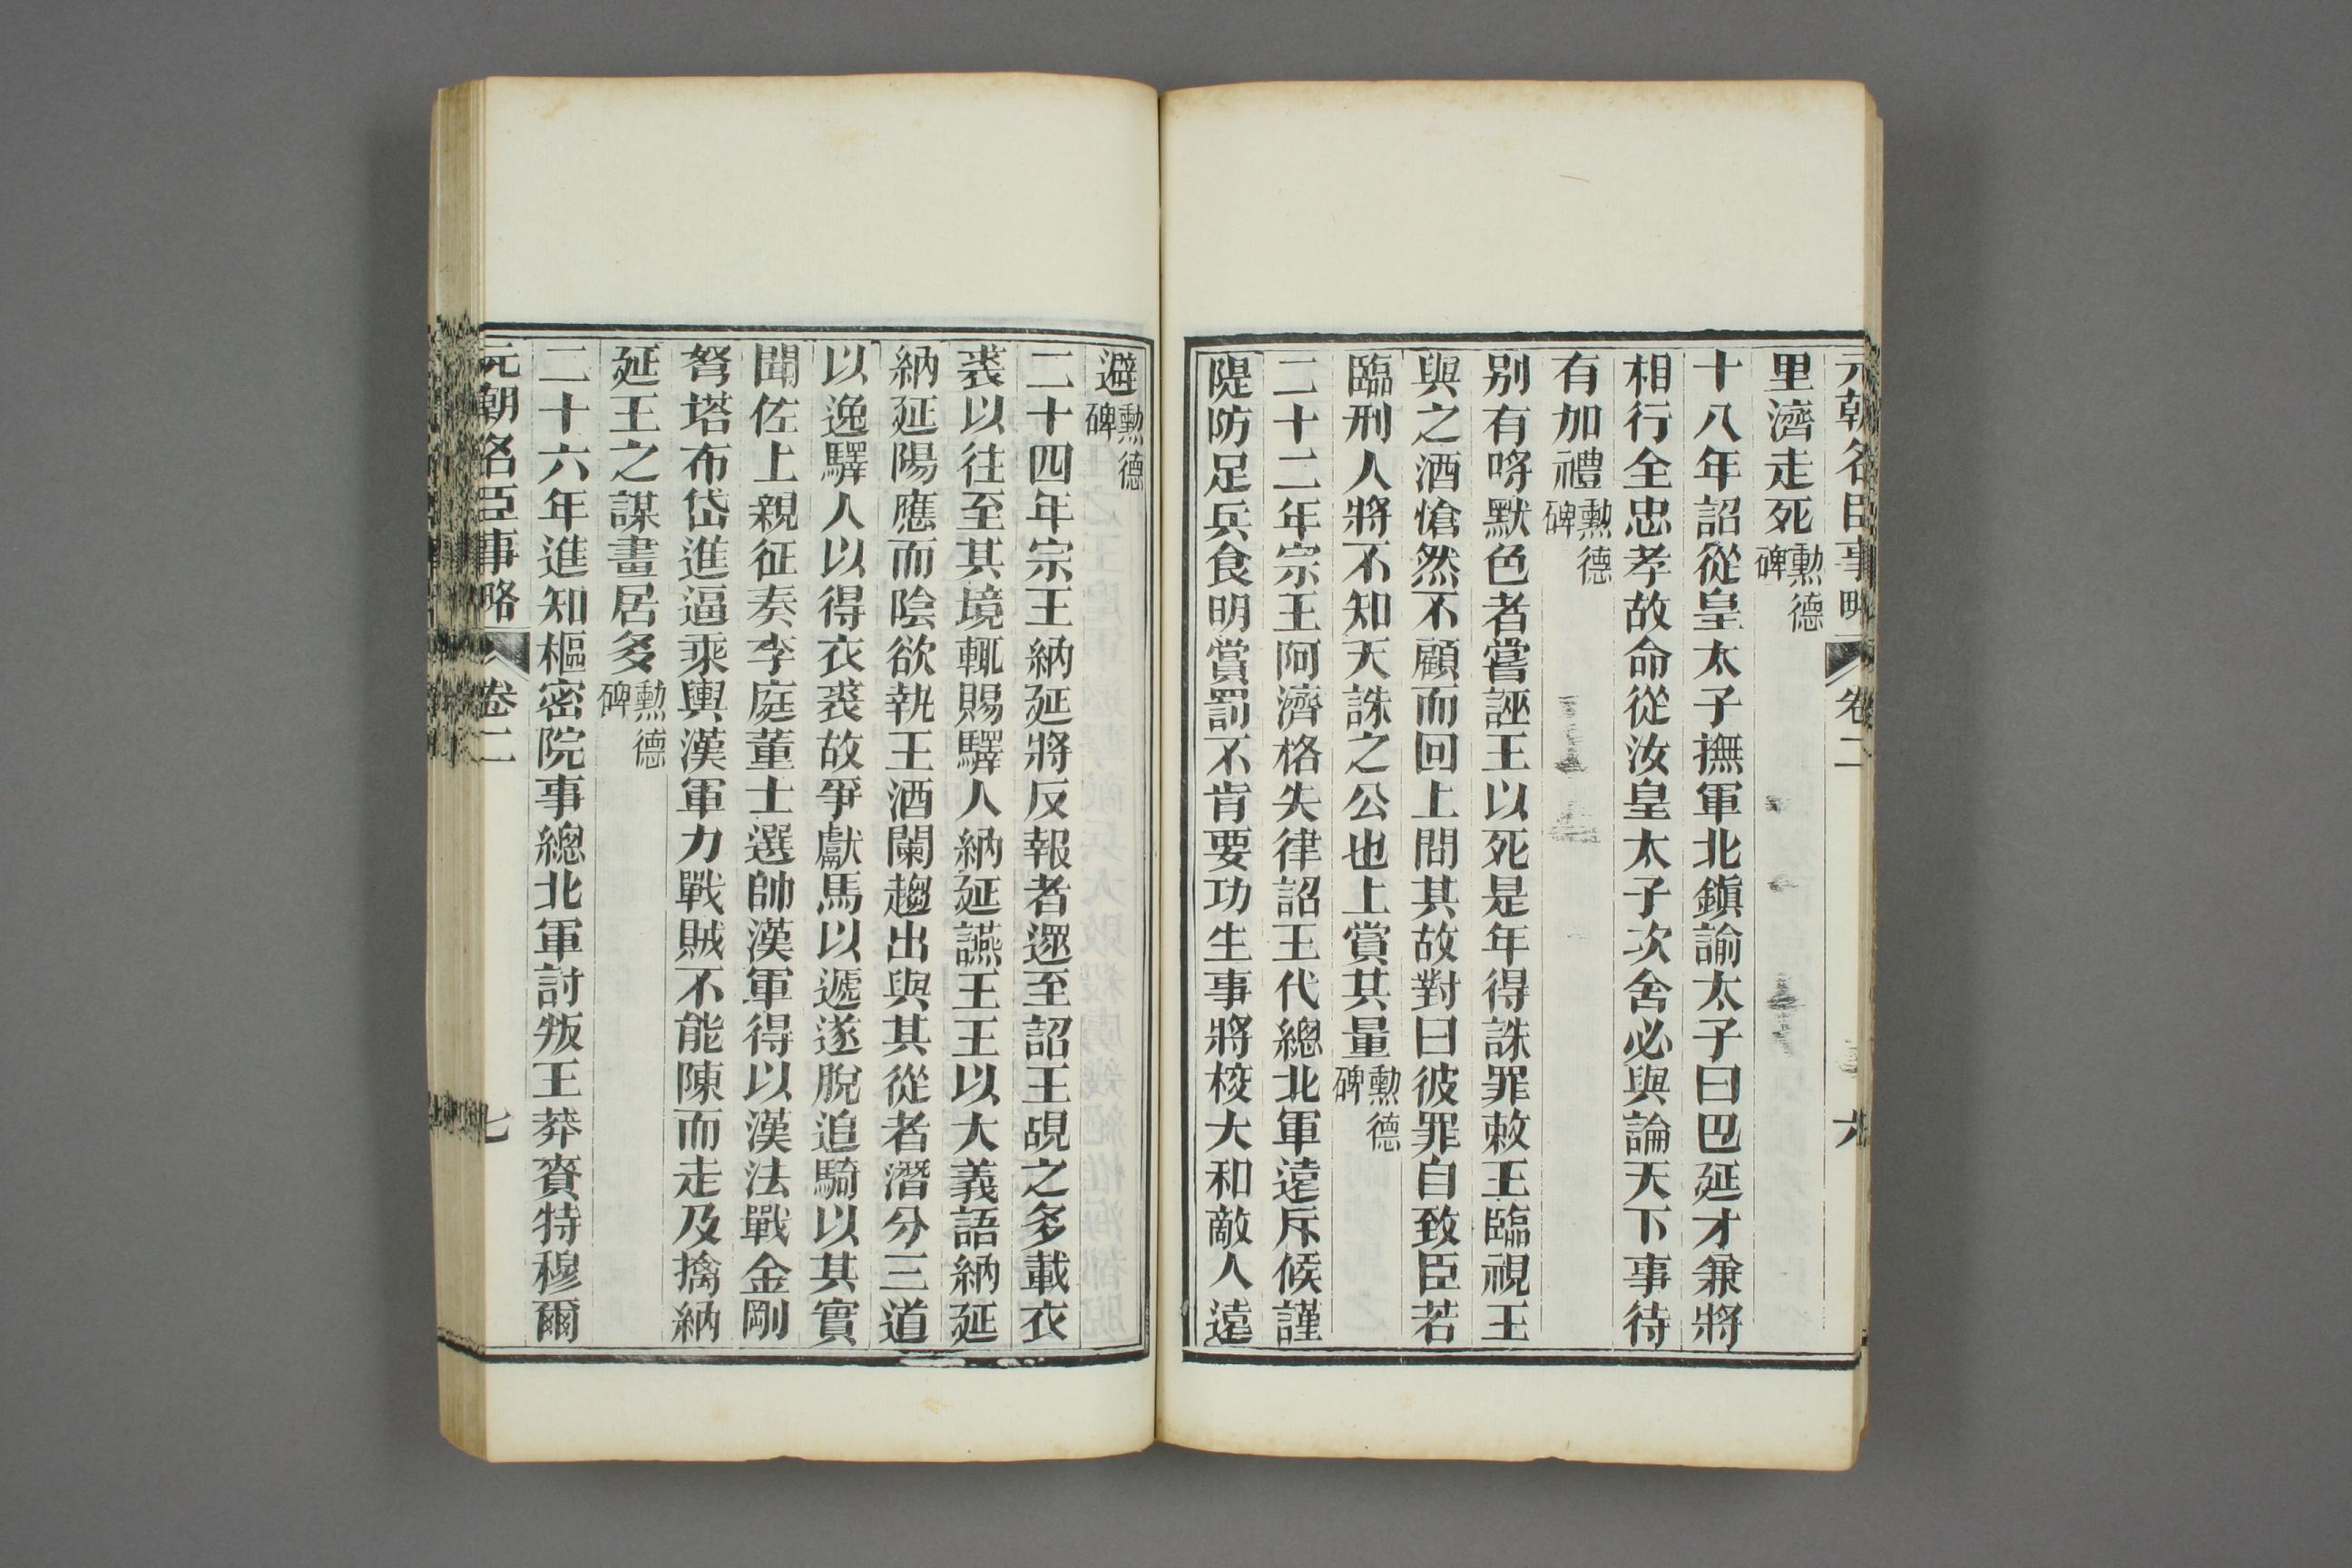 元朝名臣事略 卷二 六
里濟走死勲德碑
十八年詔從皇太子撫軍北鎭諭太子曰巴延才兼將
相行全忠孝故命從汝皇太子次舍必與論天下事待
有加禮勲德碑
别有哷默色者嘗誣王以死是年得誅罪敕王臨視王
與之酒愴然不顧而回上問其故對曰彼罪自致臣若
臨刑人將不知天誅之公也上賞其量勲德碑
二十二年宗王阿濟格失律詔王代總北軍遠斥候謹
隄防足兵食明賞罰不肯要功生事將校大和敵人遠
避勲德碑
二十四年宗王納延將反報者還至詔王覘之多載衣
裘以往至其境輒賜驛人納延讌王王以大義語納延
納延陽應而陰欲執王酒闌趨出與其從者潛分三道
以逸驛人以得衣裘故爭獻馬以遞遂脫追騎以其實
聞佐上親征奏李庭董士選帥漢軍得以漢法戰金剛
弩塔布岱進逼乘輿漢軍力戰賊不能陳而走及擒納
延王之謀畫居多勲德碑
二十六年進知樞密院事總北軍討叛王莽賚特穆爾
元朝名臣事略 卷二 七